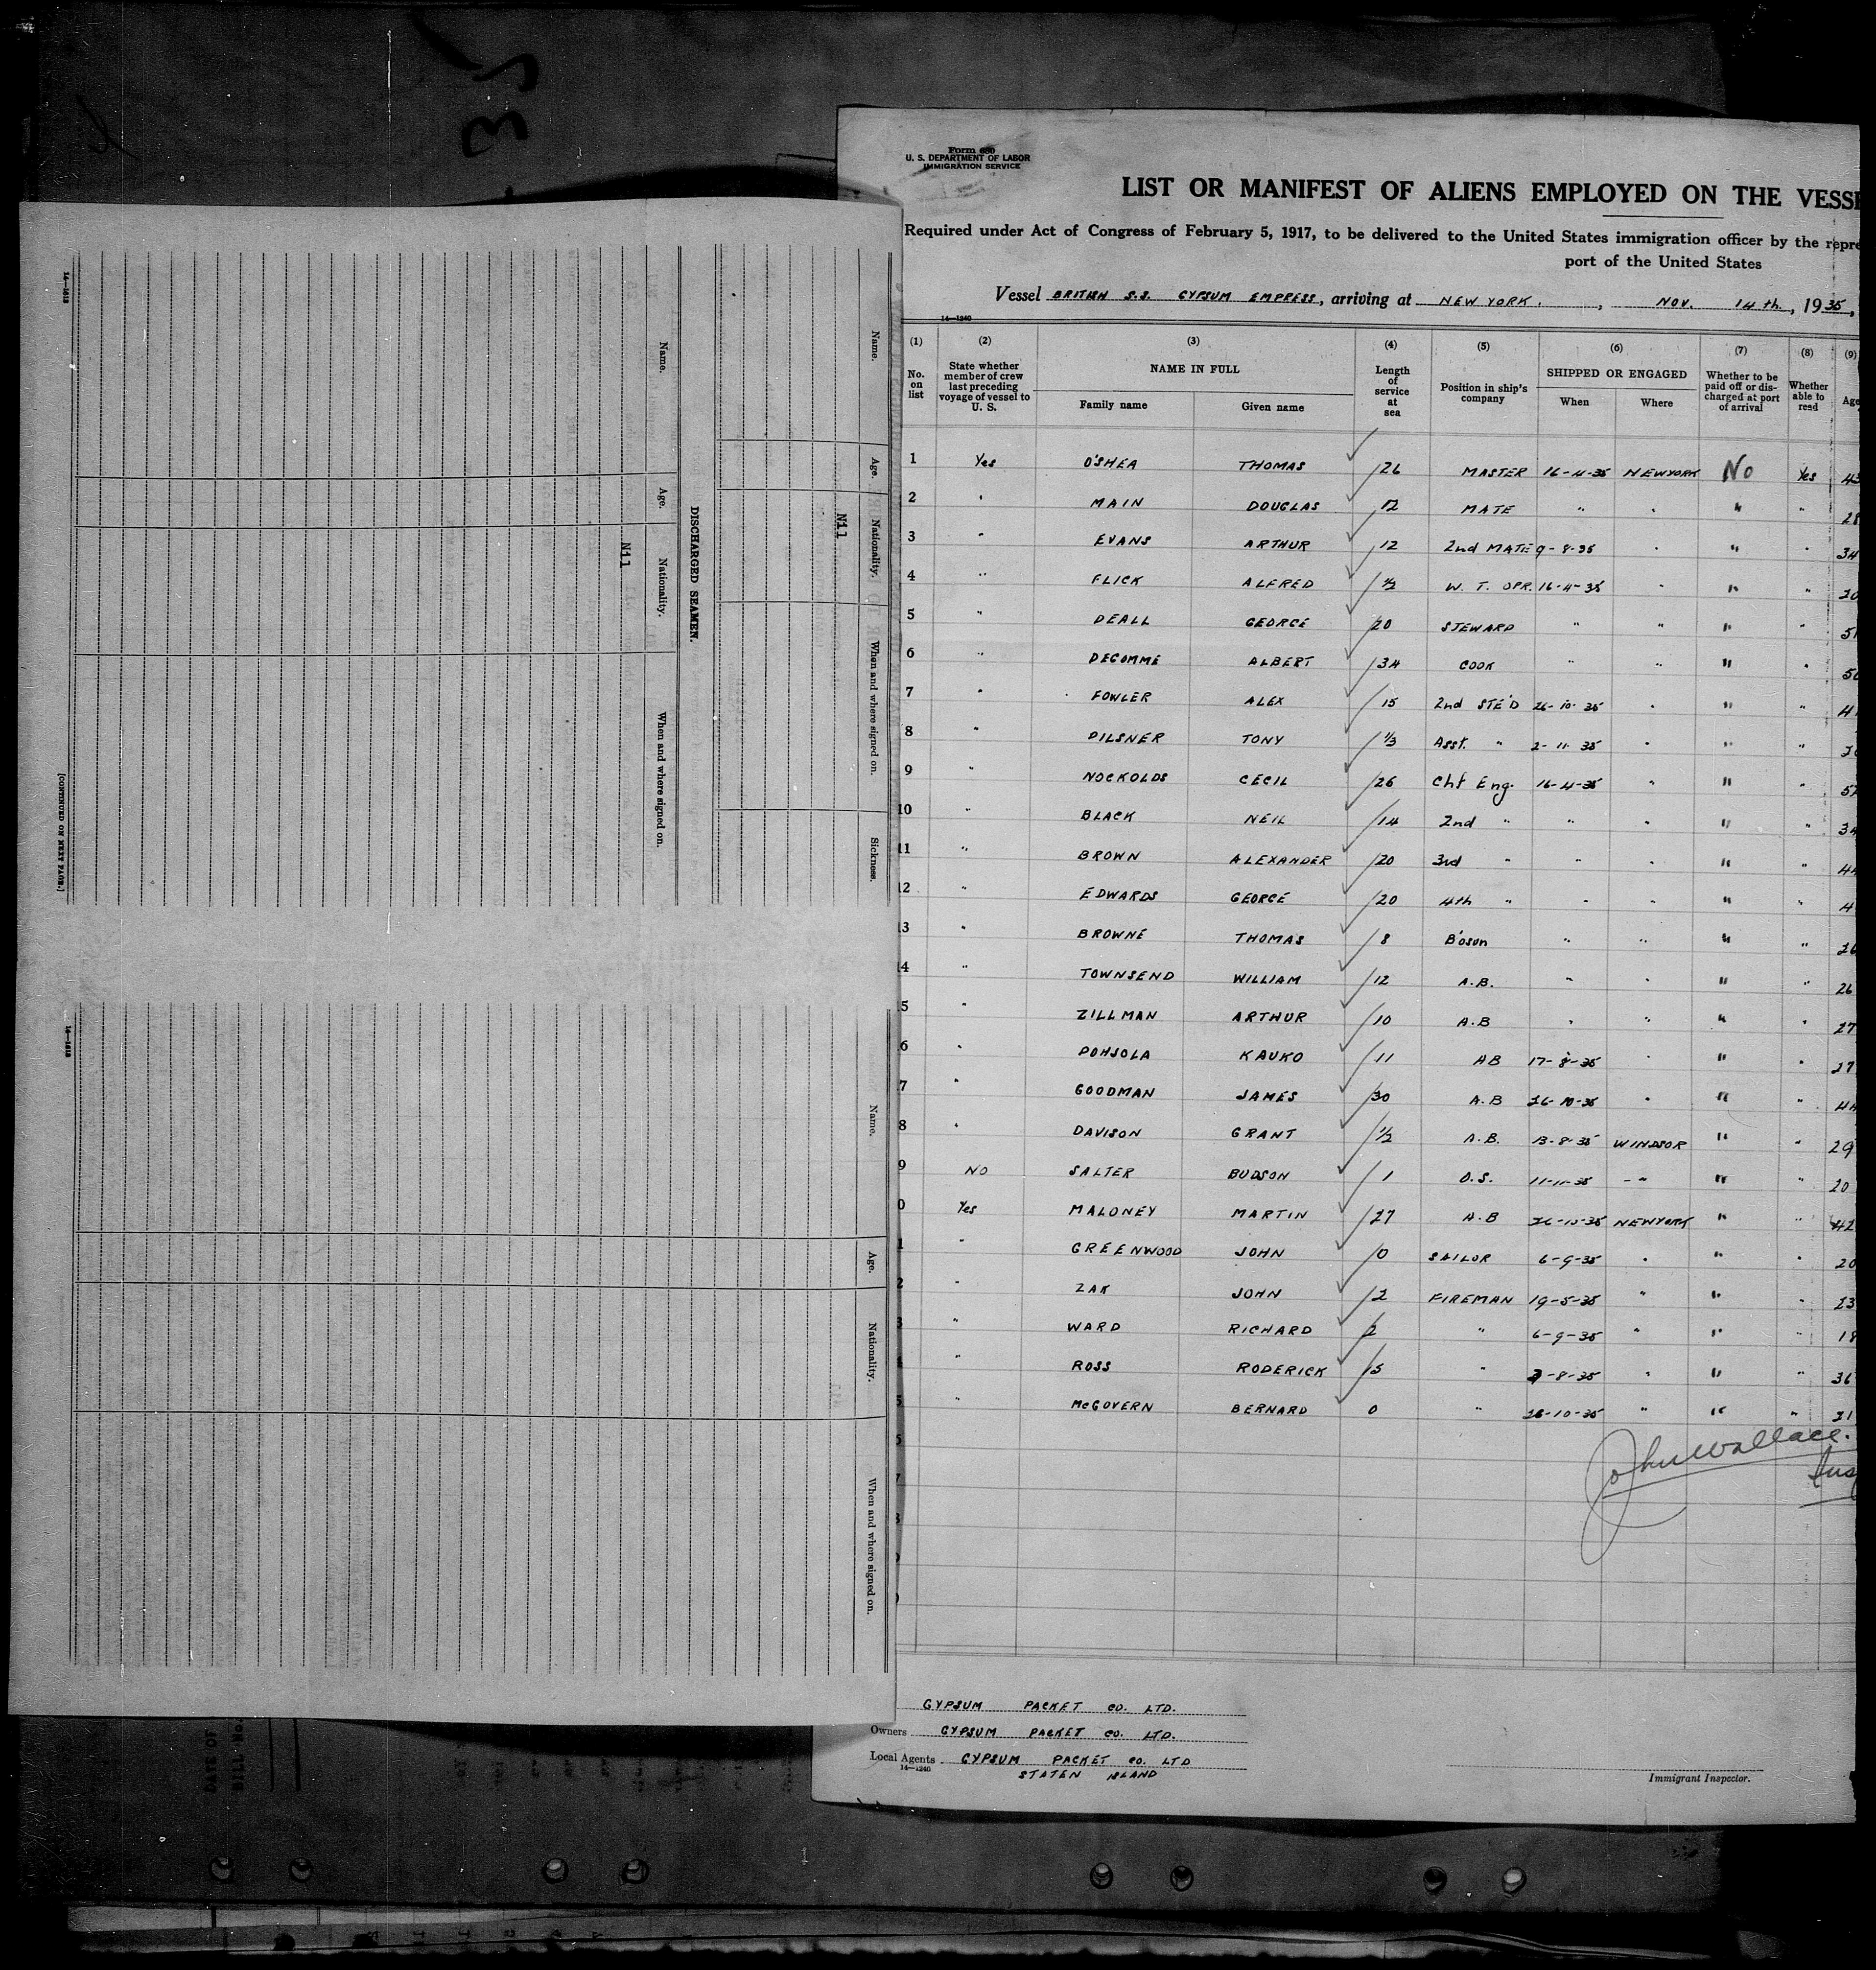 Form 680
U. S. DEPARTMENT OF LABOR
IMMIGRATION SERVICE
LIST OR MANIFEST OF ALIENS EMPLOYED ON THE VESSE
Required under Act of Congress of February 5, 1917, to be delivered to the United States immigration officer by the repre
port of the United States
Vessel BRITISH S.S. GYPSUM EMPRESS, arriving at NEW YORK, NOV. 14th, 1935,
14—1240
(1) (2) (3) (4) (5) (6) (7) (8) (9)
No. on list
State whether member of crew last preceding voyage of vessel to U. S.
NAME IN FULL
Family name Given name
Length of service at sea
Position in ship's company
SHIPPED OR ENGAGED
When Where
Whether to be paid off or discharged at port of arrival
Whether able to read
Age
1 Yes O'SHEA THOMAS 26 MASTER 16-4-35 NEWYORK No Yes 43
2 " MAIN DOUGLAS 12 MATE " " " " 28
3 " EVANS ARTHUR 12 2nd MATE 9-8-35 " " " 34
4 " FLICK ALFRED 1/2 W. T. OPR. 16-4-35 " " " 20
5 " DEALL GEORGE 20 STEWARD " " " " 51
6 " DECOMME ALBERT 34 COOK " " " " 50
7 " FOWLER ALEX 15 2nd STE'D 26-10-35 " " " 4
8 " PILSNER TONY 1/3 Asst. " 2-11-35 " " "
9 " NOCKOLDS CECIL 26 Chf Eng. 16-4-35 " " " 52
10 " BLACK NEIL 14 2nd " " " " " 34
11 " BROWN ALEXANDER 20 3rd " " " " " 44
12 " EDWARDS GEORGE 20 4th " " " " " 4
13 " BROWNE THOMAS 8 B'osun " " " " 26
14 " TOWNSEND WILLIAM 12 A.B. " " " " 26
5 " ZILLMAN ARTHUR 10 A.B " " " " 27
6 " POHJOLA KAUKO 11 AB 17-8-35 " " " 27
7 " GOODMAN JAMES 30 A.B 26-10-35 " " " 44
8 " DAVISON GRANT 1/2 A.B. 13-8-35 WINDSOR " " 29
9 NO SALTER BUDSON 1 O.S. 11-11-35 -" " " 20
0 Yes MALONEY MARTIN 27 A.B 26-10-35 NEWYORK " " 42
" GREENWOOD JOHN 0 SAILOR 6-9-35 " " " 20
2 " ZAK JOHN 2 FIREMAN 19-5-35 " " " 23
3 " WARD RICHARD 2 " 6-9-35 " " " 18
" ROSS RODERICK 15 " 3-8-35 " " " 36
5 " McGOVERN BERNARD 0 " 26-10-35 " " " 21
John Wallace.
Ins
GYPSUM PACKET CO. LTD.
Owners GYPSUM PACKET CO. LTD.
Local Agents GYPSUM PACKET CO. LTD
14—1240
STATEN ISLAND
Immigrant Inspector.
Name. Age. Nationality. When and where signed on. Sickness.
Nil
DISCHARGED SEAMEN.
Name. Age. Nationality. When and where signed on.
Nil
[CONTINUED ON NEXT PAGE.]
14—1613
Name. Age. Nationality. When and where signed on.
14—1613
35
DATE OF
BILL No.